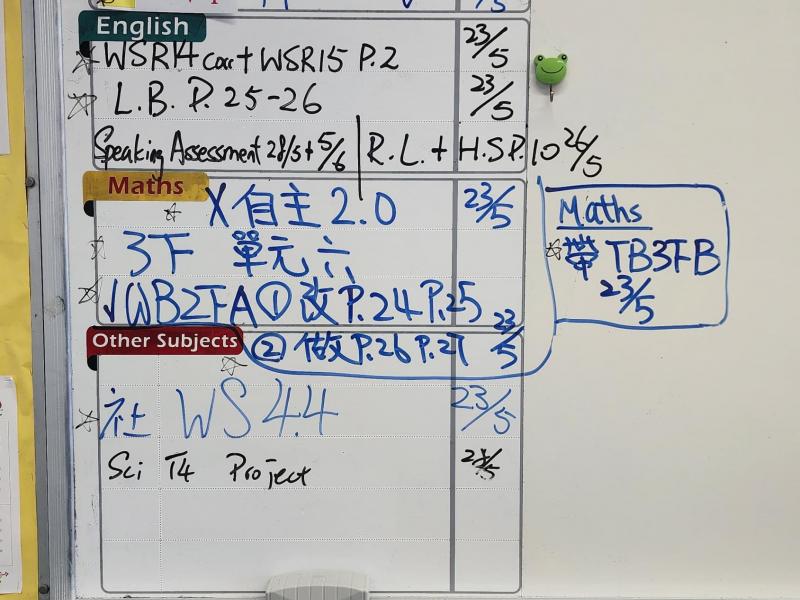 English
WSR14 corr + WSR15 P.2 23/5
L.B. P. 25-26 23/5
Speaking Assessment 28/5 + 5/6 | R.L. + H.S.P.10 26/5
Maths
X 自主 2.0 23/5
3下 單元六
√WB2FA ① 改 P.24 P.25
② 做 P.26 P.27 23/5
Maths
帶 TB3FB
23/5
Other Subjects
社 WS 4.4 23/5
Sci T4 Project